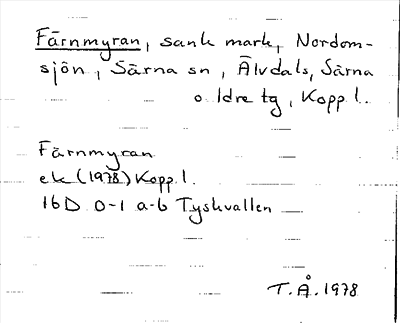 Färnmyran, sank mark, Nordom-
sjön, Särna sn, Älvdals, Särna
o Idre tg, Kopp l.
Färnmyran
ek (1978) Kopp l.
16D 0-1 a-b Tyskvallen
T.Å. 1978